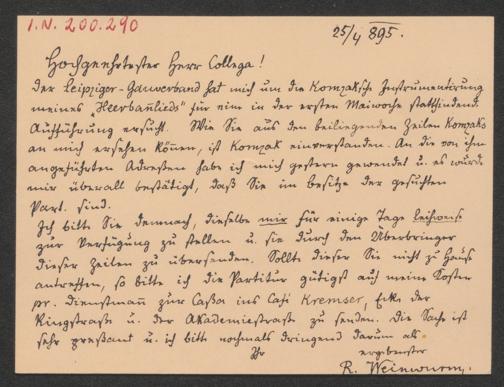 I.N. 200.290
25/4 895.
Hochgeehrtester Herr Collega!
Der Leipziger-Gauverband hat mich um die Komzaksche Instrumentirung
meines „Heerbanlieds" für eine in der ersten Maiwoche stattfindend
Aufführung ersucht. Wie Sie aus den beiliegenden Zeilen Komzaks
an mich ersehen können, ist Komzak einverstanden. An die von ihm
angeführten Adressen habe ich mich gestern gewendet u. es wurde
mir überall bestätigt, daß Sie im Besitze der gesuchten
Part. sind.
Ich bitte Sie demnach, dieselbe mir für einige Tage leihweise
zur Verfügung zu stellen u. sie durch den Überbringer
dieser Zeilen zu übersenden. Sollte dieser Sie nicht zu Hause
antreffen, so bitte ich die Partitur gütigst auf meine Kosten
pr. Dienstmann zur Cassa ins Café Kremser, Ecke der
Ringstraße u. der Akademiestraße zu senden. Die Sache ist
sehr pressant u. ich bitte nochmals dringend darum als
Ihr ergebenster
R. Weinwurm.